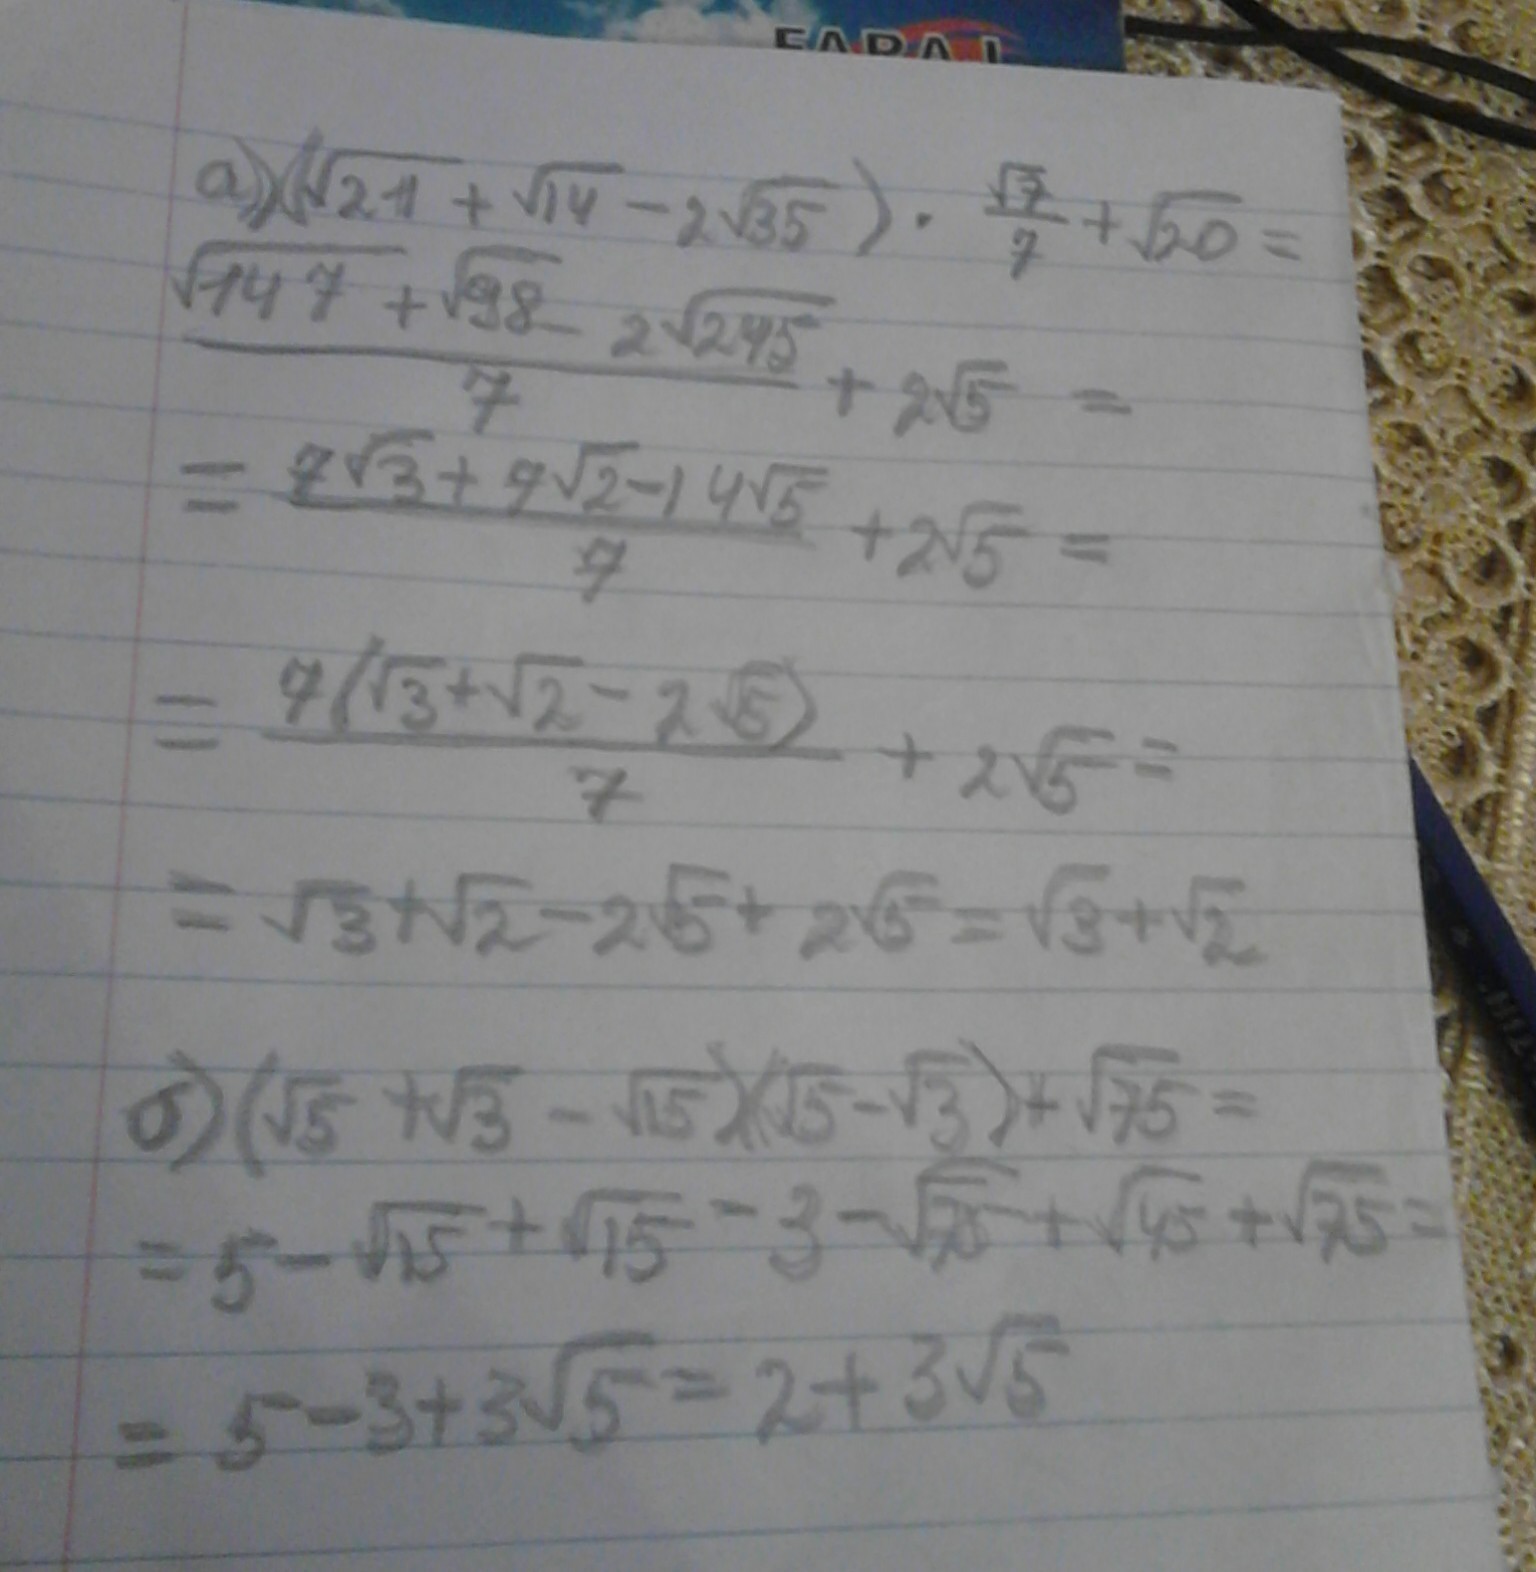 FARAJ
а) (√21 + √14 - 2√35) · √7/7 + √20 =
(√147 + √98 - 2√245)/7 + 2√5 =
= (7√3 + 7√2 - 14√5)/7 + 2√5 =
= 7(√3 + √2 - 2√5)/7 + 2√5 =
= √3 + √2 - 2√5 + 2√5 = √3 + √2
б) (√5 + √3 - √15)(√5 - √3) + √75 =
= 5 - √15 + √15 - 3 - √75 + √45 + √75 =
= 5 - 3 + 3√5 = 2 + 3√5